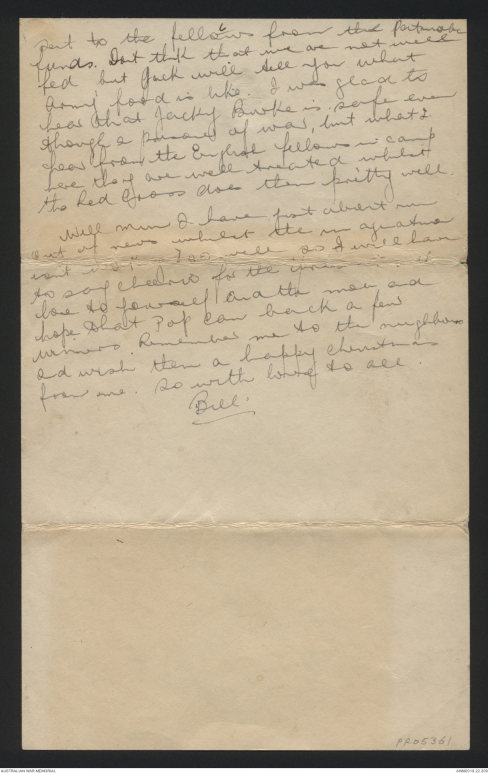 sent to the fellows from the
funds. Dont think that we are not well
fed but Jack will tell you what
Army food is like. I was glad to
hear that Jacky Burke is safe even
though a prisoner of war, but what I
hear from the English fellows in camp
here they are well treated whilst
the Red Cross does them pretty well.
Well mum I have just about run
out of news whilst the
isnt so I will have
to say cheerio for the
love to yourself and the and
hope that Pop can back a few
winners. Remember me to the neighbors
and wish them a happy christmas
from me. So with love to all.
Bill.
PR05361
AUSTRALIAN WAR MEMORIAL